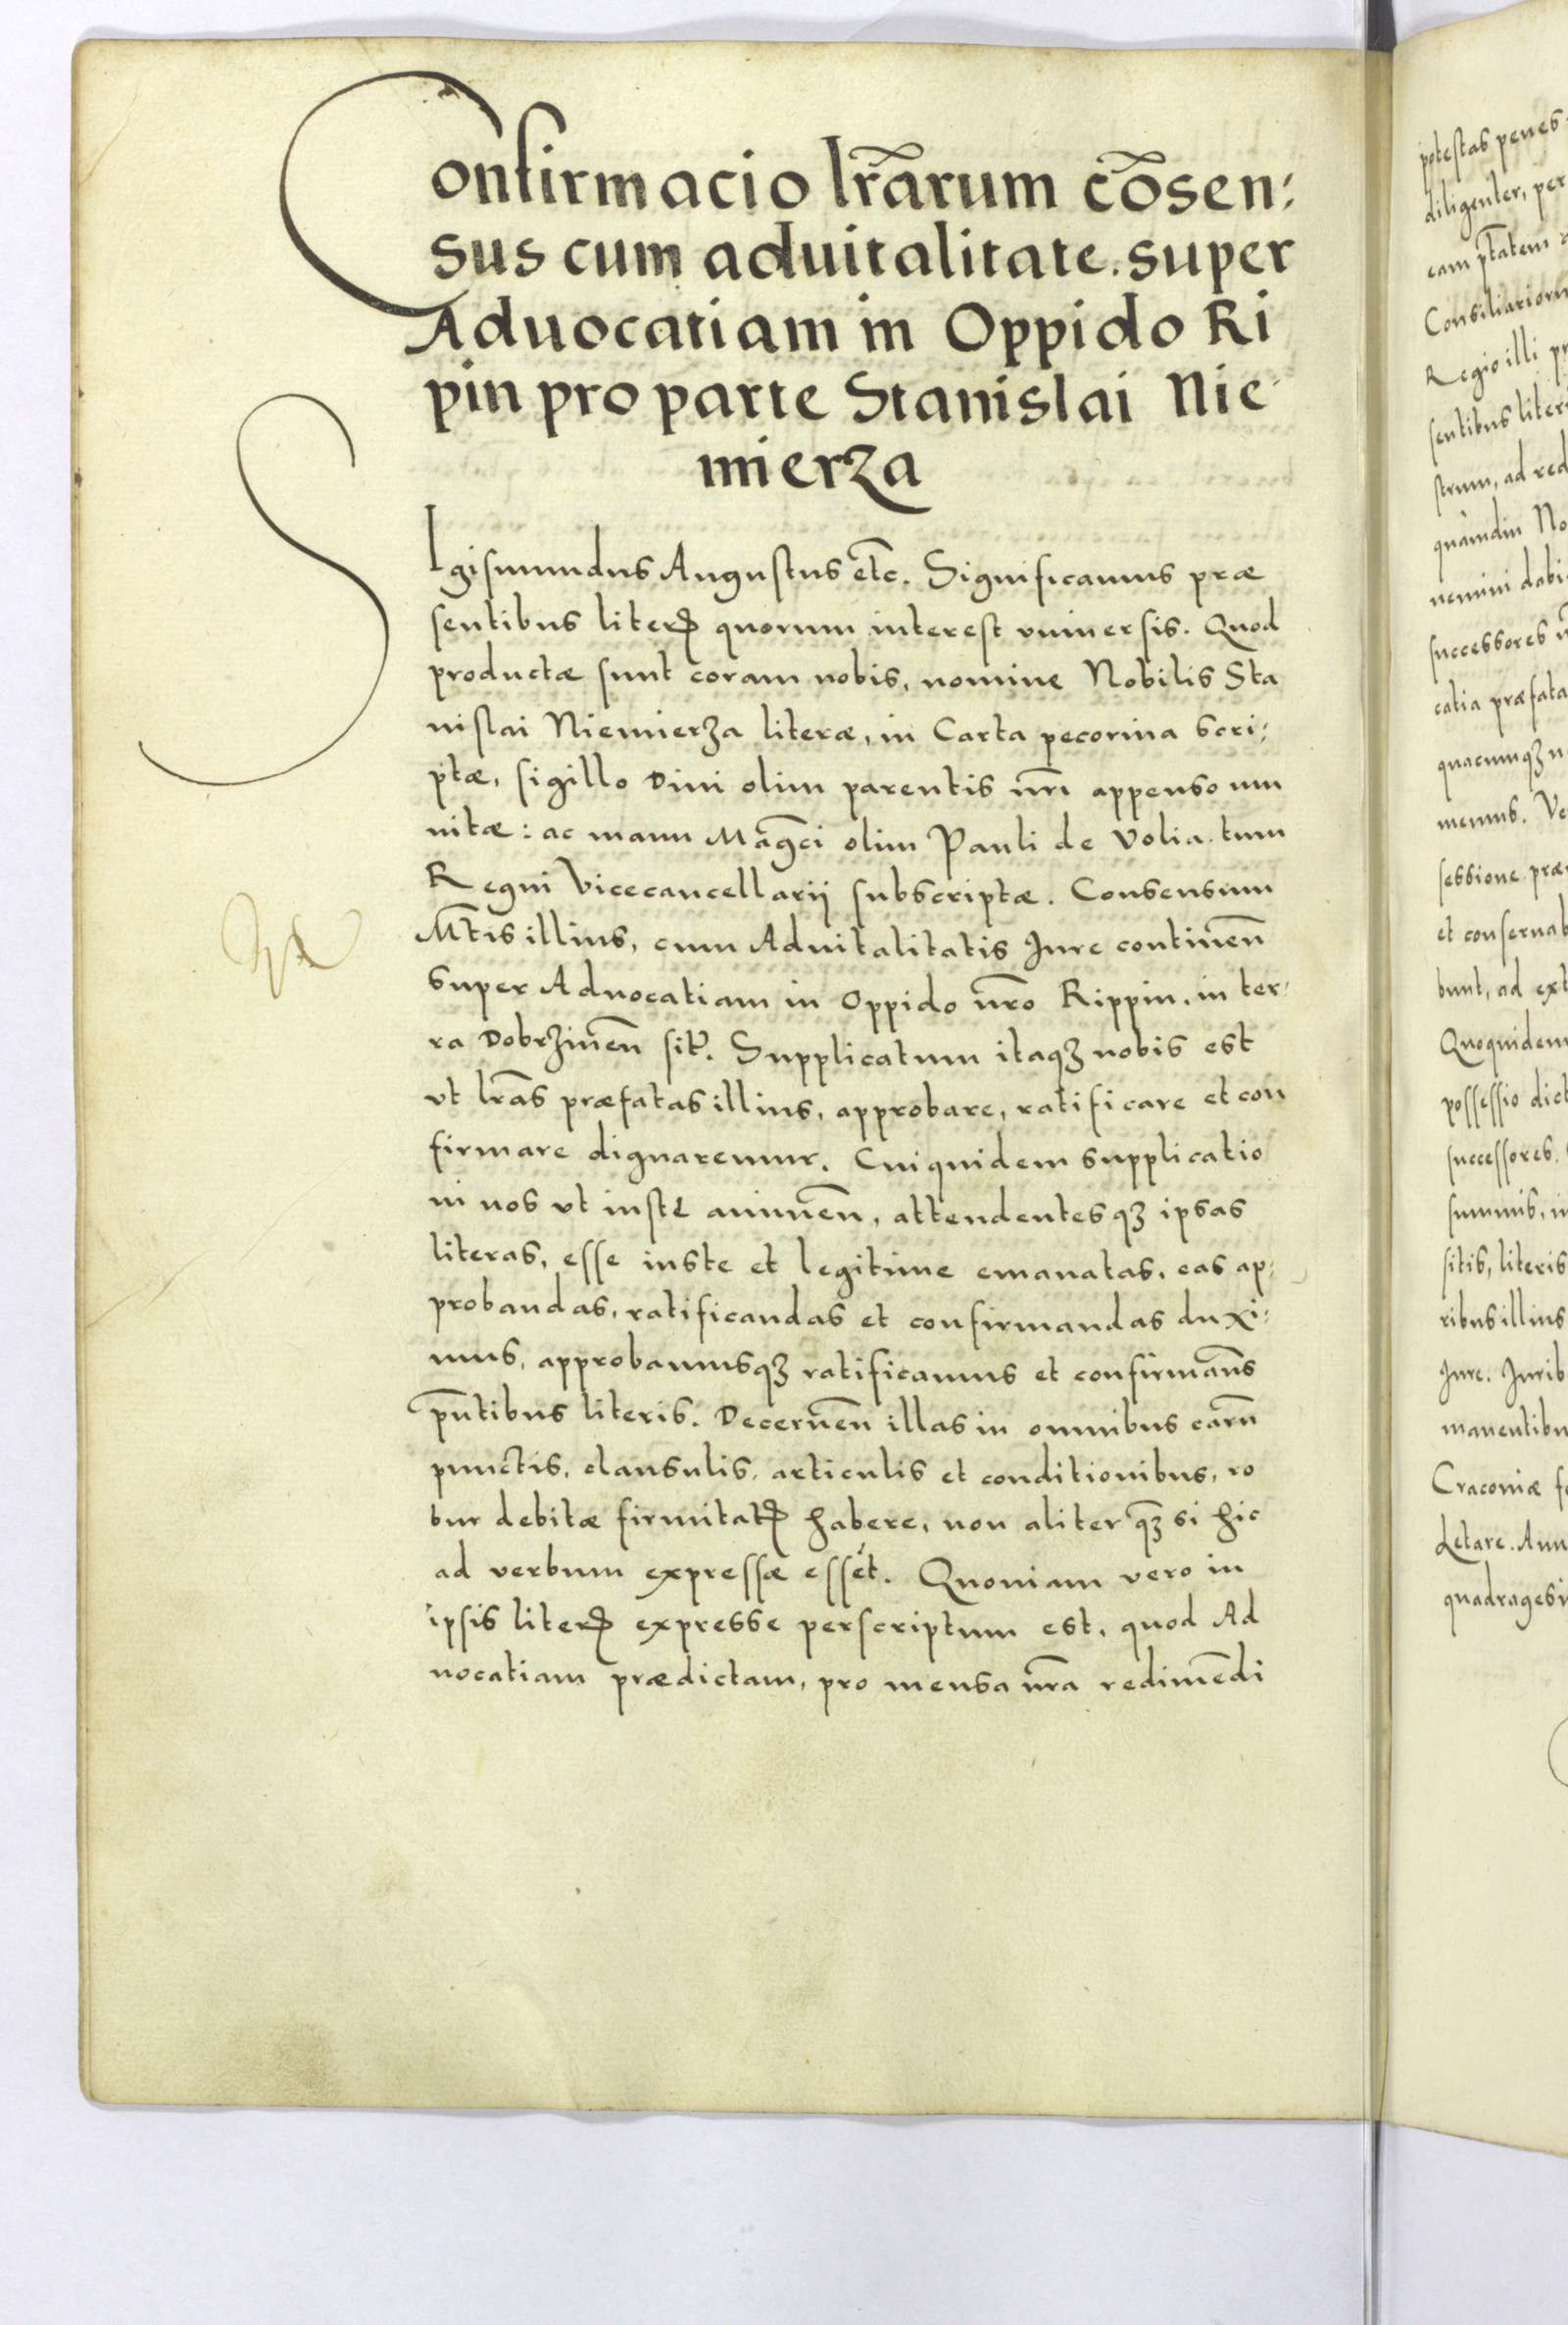 Confirmacio lr̃arum cõsen:
sus cum aduitalitate. super
Aduocatiam in Oppido Ri
pin pro parte Stanislai Nie-
mierza
SIgismundus Augustus etc̃. Significamus præ
sentibus literꝭ quorum interest vniuersis. Quod
productæ sunt coram nobis, nomine Nobilis Sta
nislai Niemierza literæ, in Carta pecorina scri:
ptæ, sigillo Diui olim parentis nr̃i appenso mu
nitæ: ac manu Mag̃ci olim Pauli de Volia tum
Regni Vicecancellarij subscriptæ. Consensum
Mt̃is illius, cum Aduitalitatis Jure continen̄
super Aduocatiam in Oppido nr̃o Rippin, in ter-
ra Dobrzinen̄ sit̃. Supplicatum itaqꝫ nobis est
vt lr̃as præfatas illius, approbare, ratificare et con
firmare dignaremur. Cuiquidem supplicatio
ni nos vt iustę annuen̄, attendentesqꝫ ipsas
literas, esse iuste et legitime emanatas, eas ap:
probandas, ratificandas et confirmandas duxi:
mus, approbamusqꝫ ratificamus et confirmam̃s
pñtibus literis. Decernen̄ illas in omnibus earũ
punctis, clausulis, articulis et conditionibus, ro
bur debitæ firmitatꝭ habere, non aliter qꝫ̃ si hic
ad verbum expressæ essẽt. Quoniam vero in
ipsis literꝭ expresse perscriptum est, quod Ad
uocatiam prædictam, pro mensa nr̃a redimẽdi
potestas penes
diligenter, per
eam pt̃atem
Consiliarioru
Regio illi pr
sentibus liter
strum, ad red
quamdiu No
nemini dabi
successores
catia præfata
quacumqꝫ
memus. Ve
sessione præ
et conseruab
bunt, ad ext
Quoquidem
possessio dict
successores.
summis, in
sitis, literis
ribus illius
Jure. Jurib
manentibu
Cracouiæ fe
Letare. Ann
quadragesi